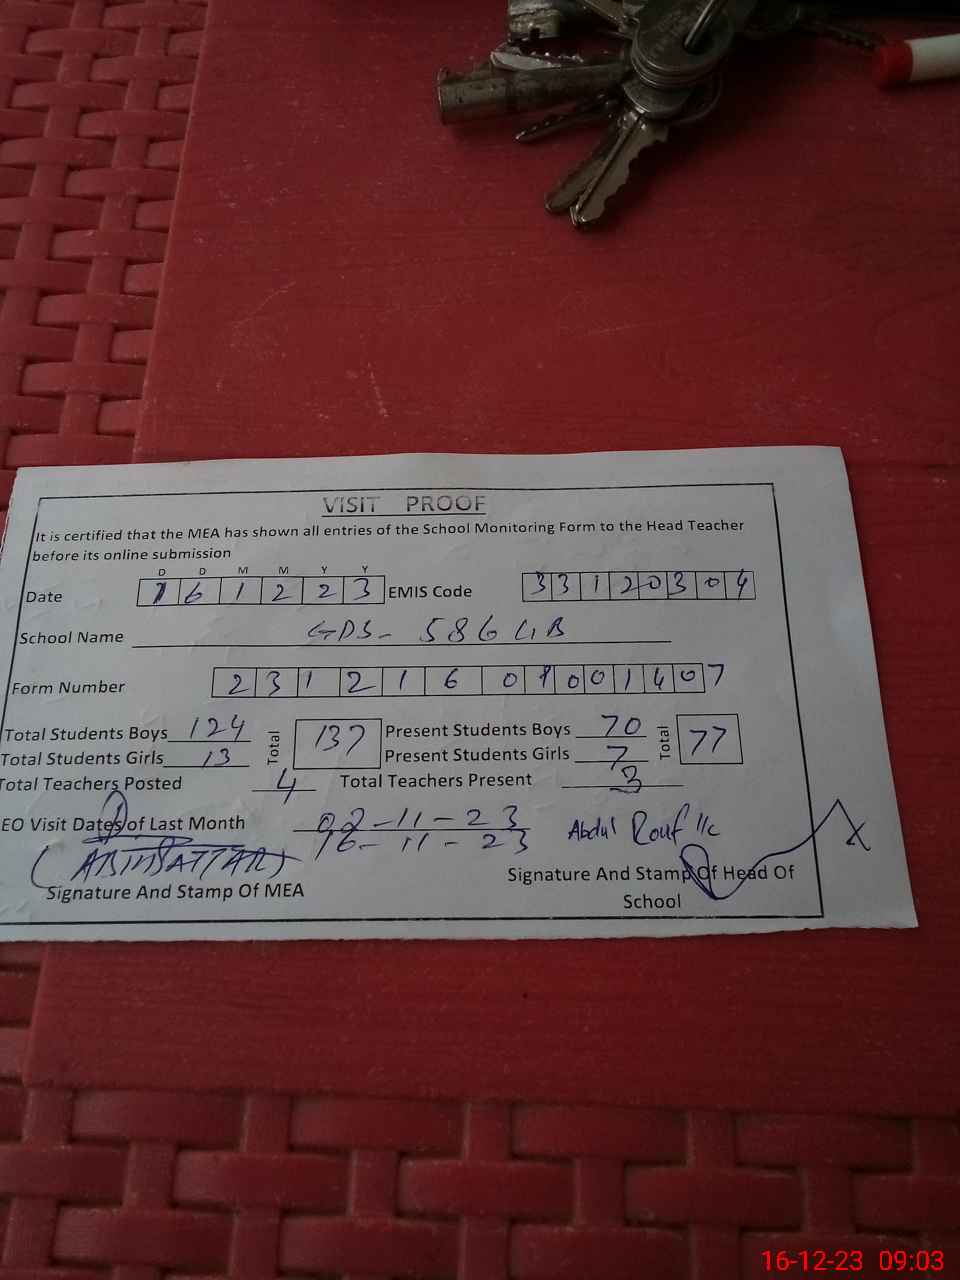 VISIT PROOF
It is certified that the MEA has shown all entries of the School Monitoring Form to the Head Teacher
before its online submission
D D M M Y Y
Date 1 6 1 2 2 3 EMIS Code 3 3 1 2 0 3 0 4
School Name GPS- 586 GB
Form Number 2 3 1 2 1 6 0 1 0 0 1 4 0 7
Total Students Boys 124 Total 137 Present Students Boys 70 Total 77
Total Students Girls 13 Present Students Girls 7
Total Teachers Posted 4 Total Teachers Present 3
EO Visit Dates of Last Month 02-11-23 Abdul Rouf
16-11-23
Signature And Stamp Of MEA Signature And Stamp Of Head Of
School
16-12-23 09:03